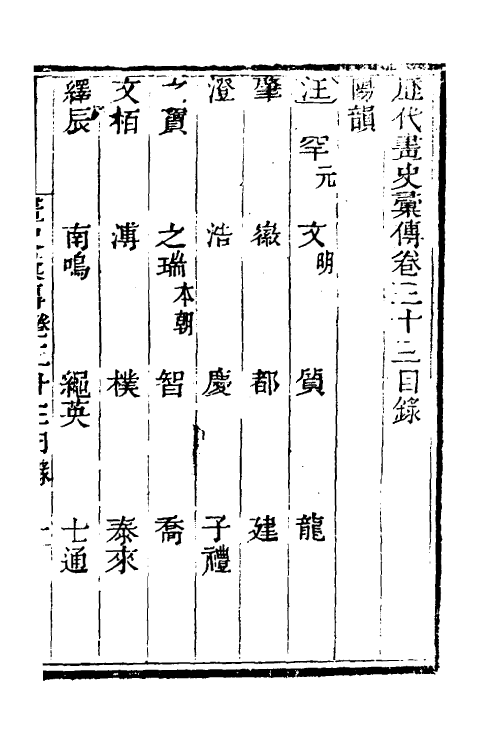 歷代畫史彙傳卷三十三目錄
陽韻
汪 罕元 文明 質 龍
肇 徽 都 建
澄 浩 慶 子禮
之寶 之瑞本朝 智 喬
文柏 溥 樸 泰來
繹辰 南鳴 繩英 士通
畫史彙傳卷三十三目錄 一